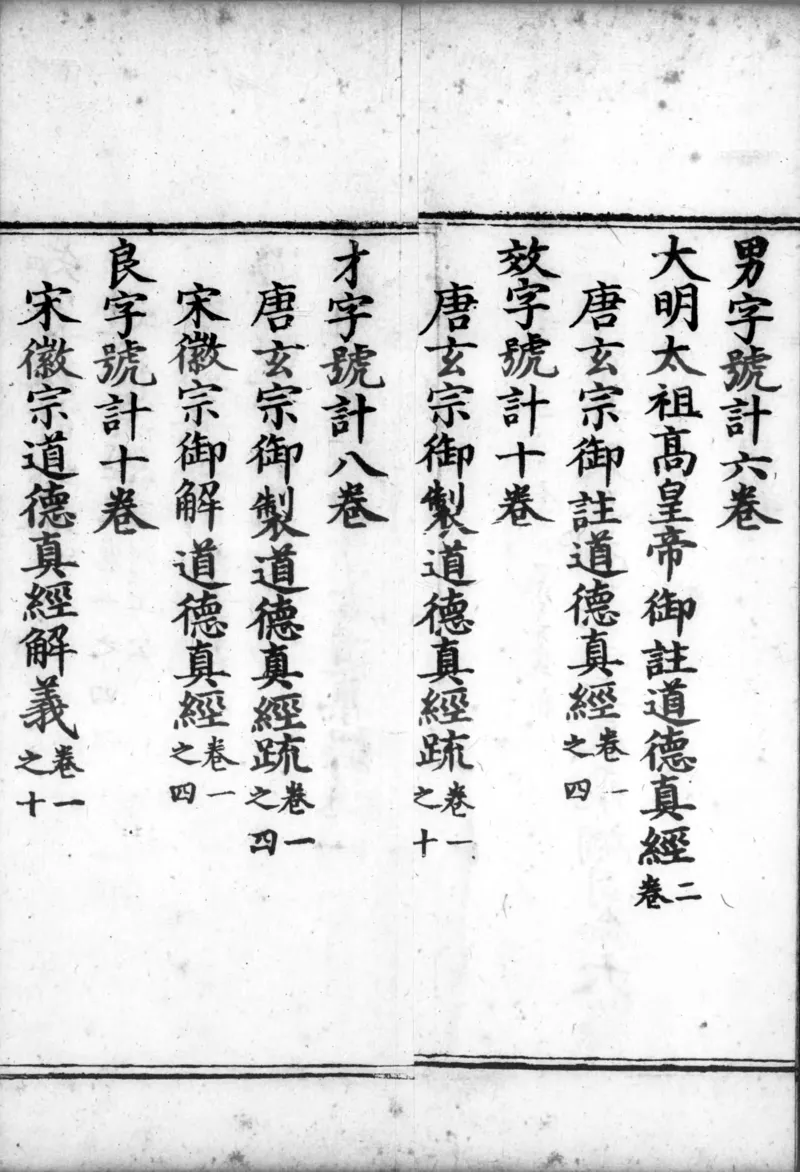 男字號計六卷
大明太祖高皇帝御註道德真經二卷
唐玄宗御註道德真經卷一之四
效字號計十卷
唐玄宗御製道德真經䟽卷一之十
才字號計八卷
唐玄宗御製道德真經䟽卷一之四
宋徽宗御解道德真經卷一之四
良字號計十卷
宋徽宗道德真經解義卷一之十